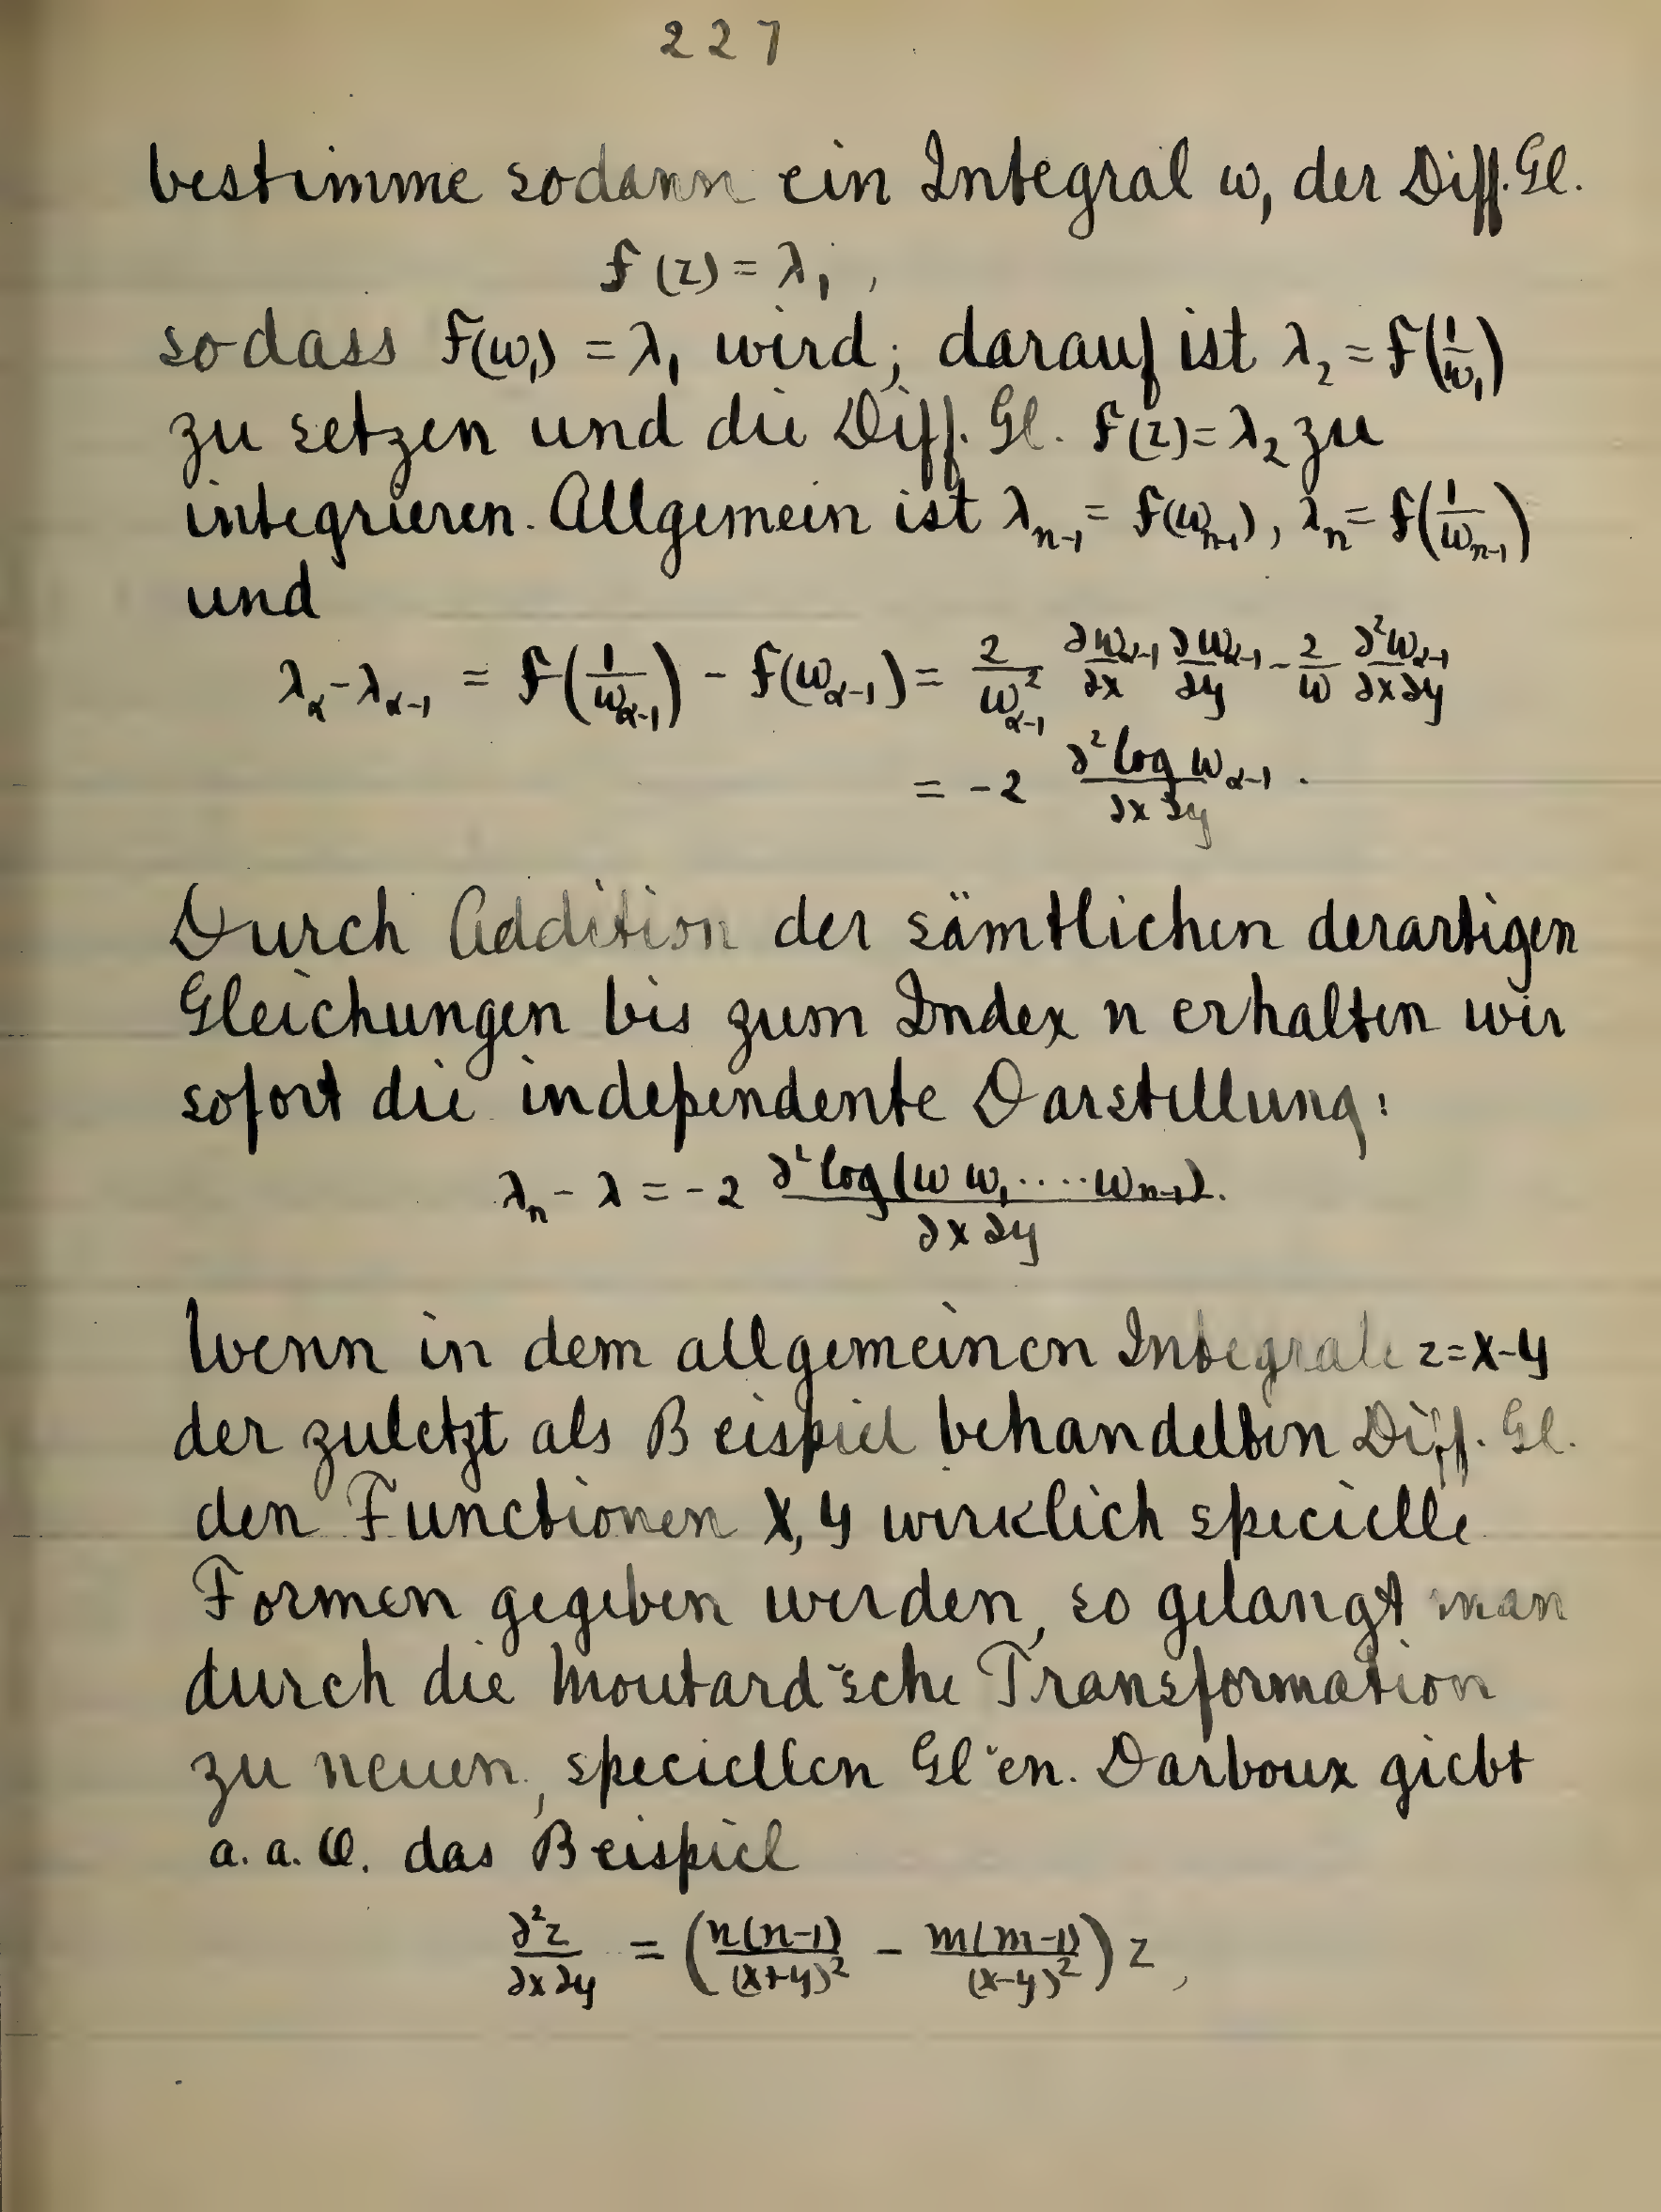 227
bestimme sodann ein Integral ω₁ der Diff. Gl.
F(z) = λ₁,
sodass F(ω₁) = λ₁ wird; darauf ist λ₂ = F(1/ω₁)
zu setzen und die Diff. Gl. F(z) = λ₂ zu
integrieren. Allgemein ist λₙ₋₁ = F(ωₙ₋₁), λₙ = F(1/ωₙ₋₁)
und
λ_α - λ_{α-1} = F(1/ω_{α-1}) - F(ω_{α-1}) = 2/ω²_{α-1} ∂ω_{α-1}/∂x ∂ω_{α-1}/∂y - 2/ω ∂²ω_{α-1}/∂x∂y
= -2 ∂² log ω_{α-1}/∂x∂y.
Durch Addition der sämtlichen derartigen
Gleichungen bis zum Index n erhalten wir
sofort die independente Darstellung:
λₙ - λ = -2 ∂² log(ω ω₁ ..... ωₙ₋₁)/∂x∂y.
Wenn in dem allgemeinen Integrale z=X-Y
der zuletzt als Beispiel behandelten Diff. Gl.
den Functionen X, Y wirklich specielle
Formen gegeben werden, so gelangt man
durch die Moutard'sche Transformation
zu neuen, speciellen Gl'en. Darboux giebt
a. a. O. das Beispiel
∂²z/∂x∂y = (n(n-1)/(x+y)² - m(m-1)/(x-y)²) z,